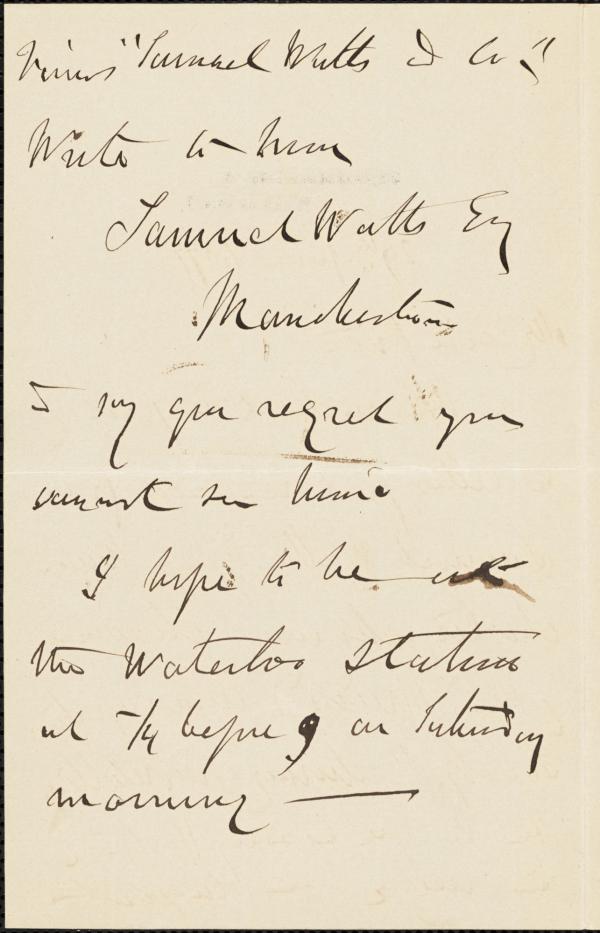 "Samuel Watts & Co"
Write to him
Samuel Watts Esq
Manchester
& say you regret you
cannot see him
I hope to be at
the Waterloo Station
at ¼ before 9 on Saturday
morning —